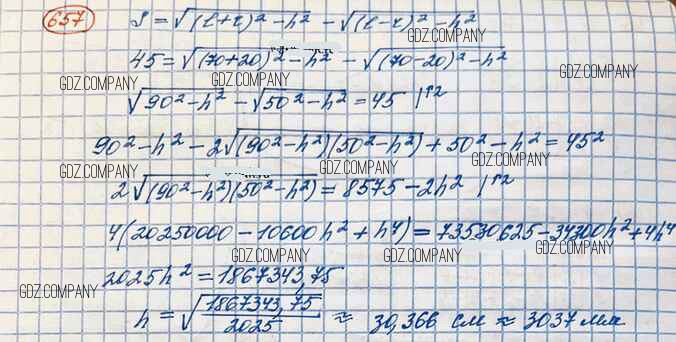 657 S = √(l+r)² - h² - √(l-r)² - h²
GDZ.COMPANY
45 = √(70+20)² - h² - √(70-20)² - h²
GDZ.COMPANY GDZ.COMPANY GDZ.COMPANY
√90² - h² - √50² - h² = 45 |↑²
90² - h² - 2√(90² - h²)(50² - h²) + 50² - h² = 45²
GDZ.COMPANY GDZ.COMPANY GDZ.COMPANY
2√(90² - h²)(50² - h²) = 8575 - 2h² |↑²
GDZ.COMPANY
4(20250000 - 10600h² + h⁴) = 73530625 - 34300h² + 4h⁴
GDZ.COMPANY GDZ.COMPANY GDZ.COMPANY
2025h² = 1867343,75
GDZ.COMPANY
h = √1867343,75/2025 ≈ 30,366 см ≈ 3037 мм
GDZ.COMPANY GDZ.COMPANY